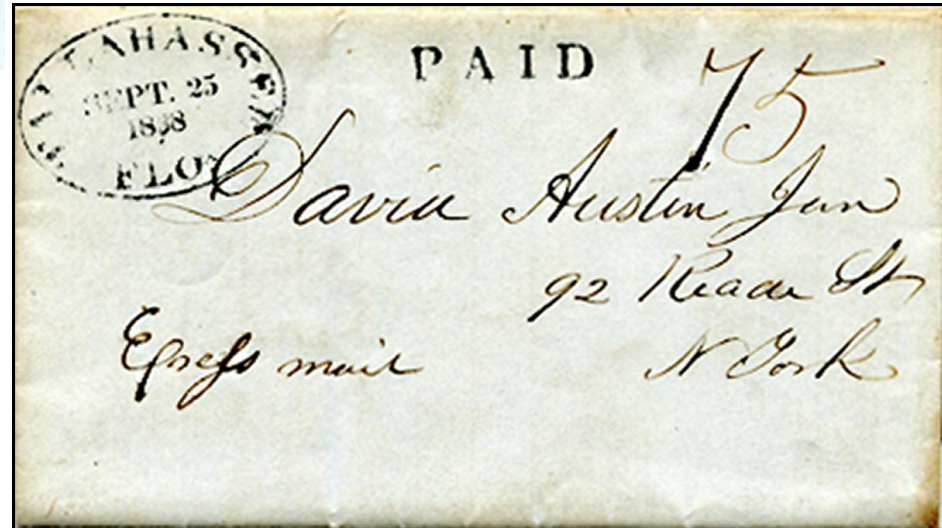 TALLAHASSEE
SEPT. 25
1838
FLO.
PAID
75
David Austin Jun
92 Reade St
N York
Express mail